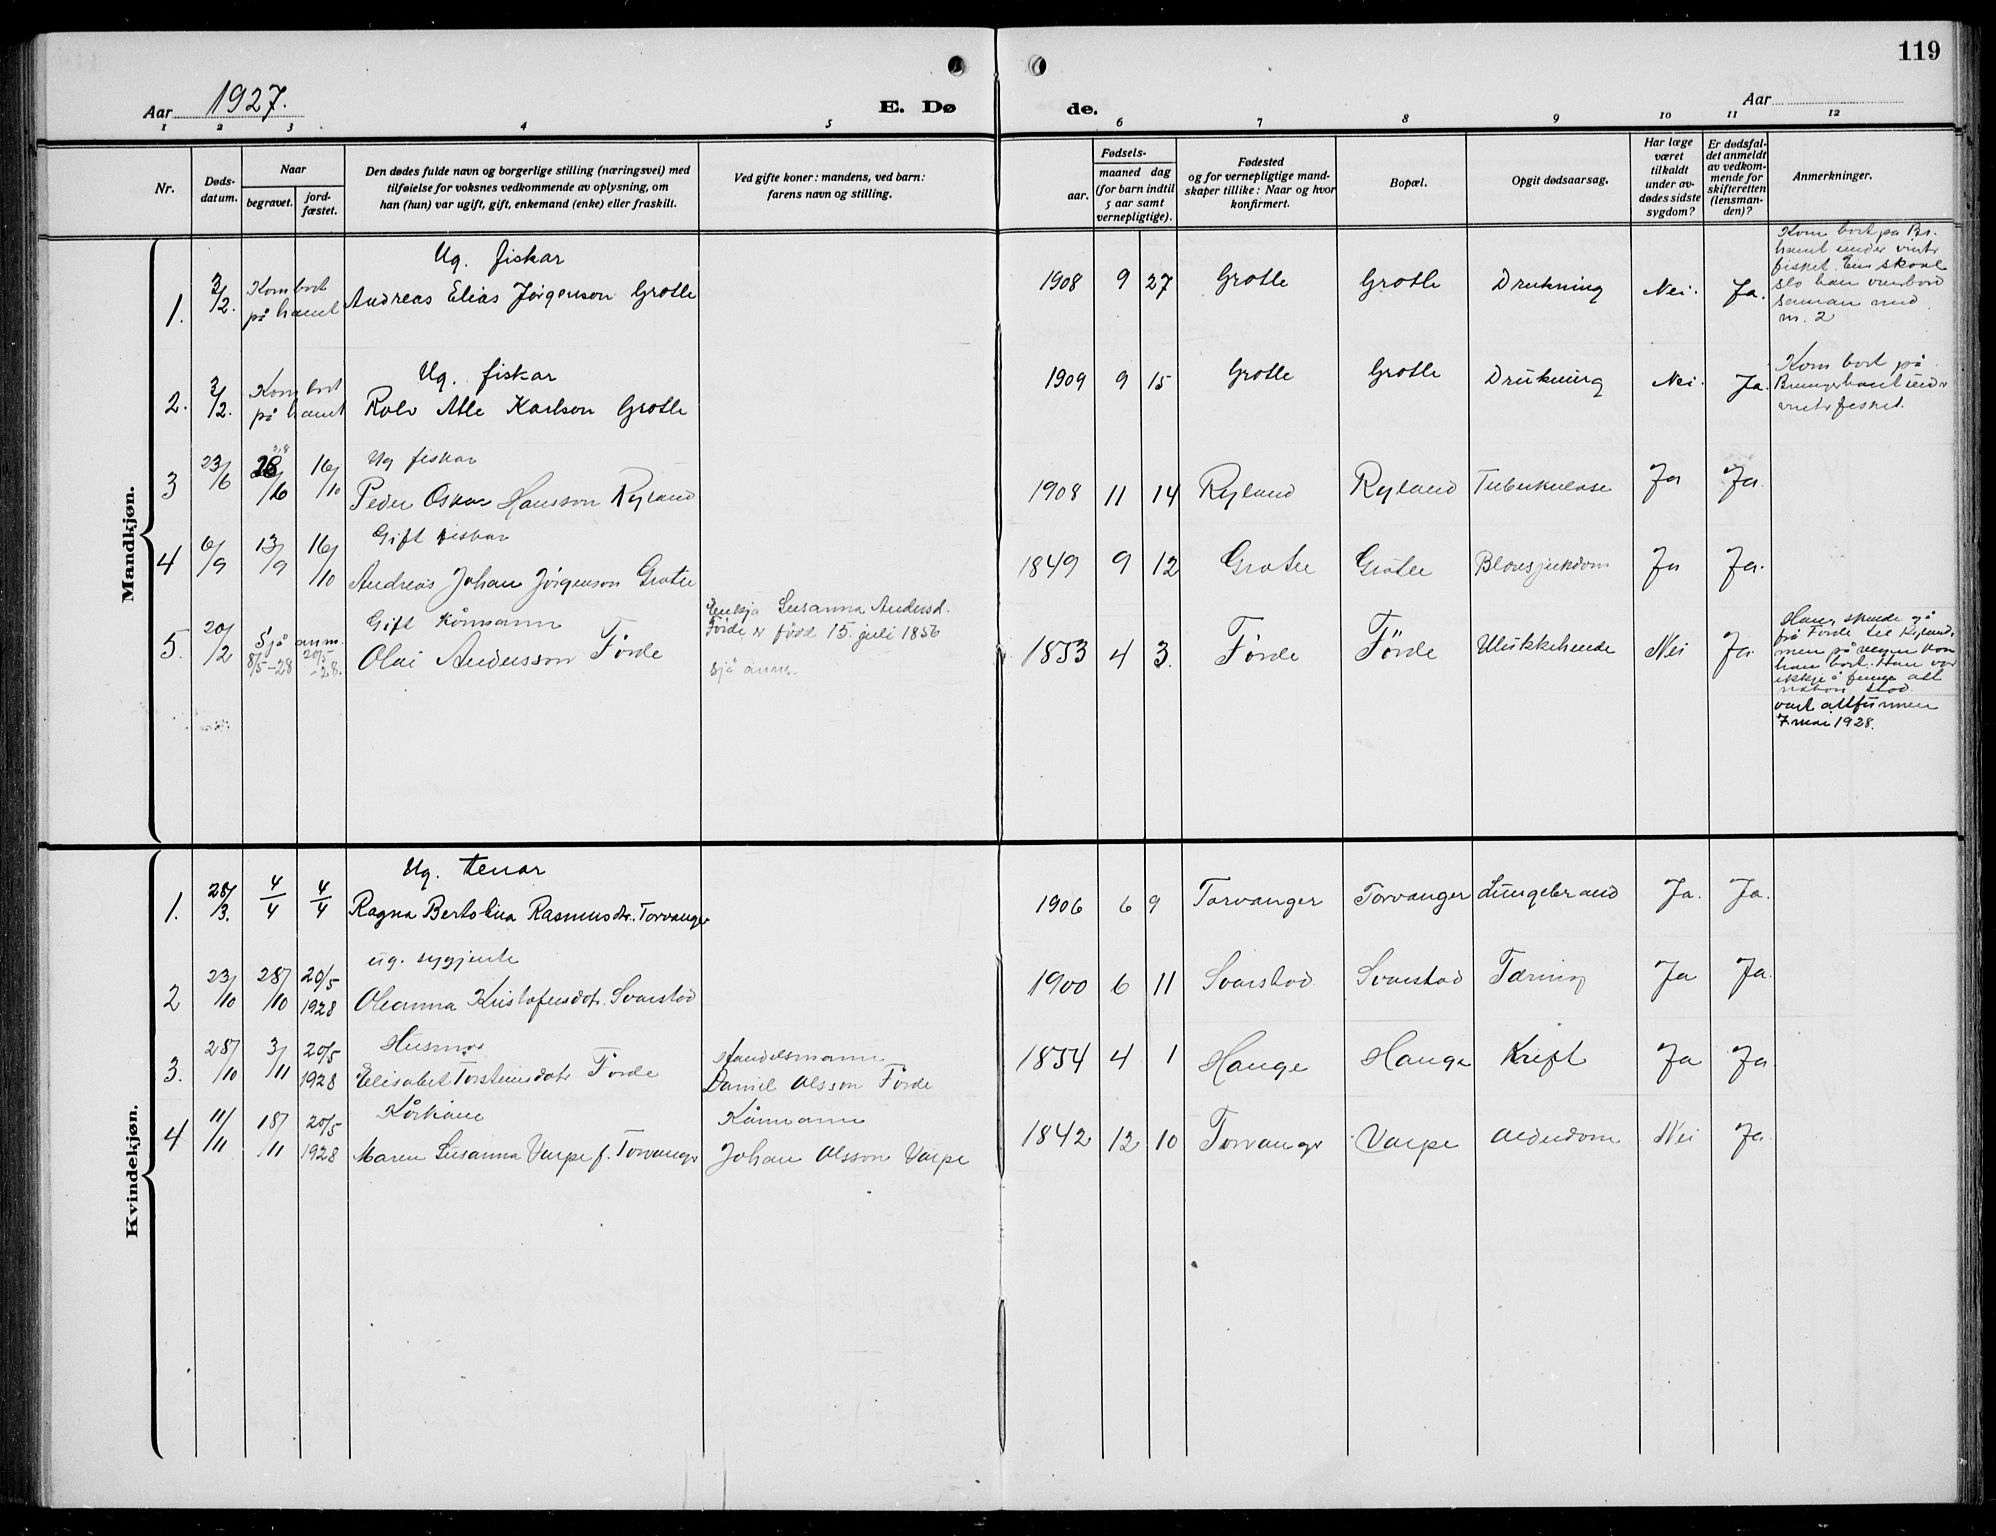 119
Aar 1927.
E. Døde.
Aar
1 2 3 4 5 6 7 8 9 10 11 12
Nr.
Døds-
datum.
Naar
begravet.
jord-
fæstet.
Den dødes fulde navn og borgerlige stilling (næringsvei) med
tilføielse for voksnes vedkommende av oplysning, om
han (hun) var ugift, gift, enkemand (enke) eller fraskilt.
Ved gifte koner: mandens, ved barn:
farens navn og stilling.
Fødsels-
aar.
maaned dag
(for barn indtil
5 aar samt
vernepligtige).
Fødested
og for vernepligtige mand-
skaper tillike: Naar og hvor
konfirmert.
Bopæl.
Opgit dødsaarsag.
Har læge
været
tilkaldt
under av-
dødes sidste
sygdom?
Er dødsfal-
det anmeldt
av vedkom-
mende for
skifteretten
(lensman-
den)?
Anmerkninger.
Mandkjøn.
1. 3/2. Kom bort på havet
Ug. fiskar
Andreas Elias Jørgenson Grotle
1908 9 27 Grotle Grotle Drukning Nei. Ja.
Kom bort på
havet under vinter
fisket. Ein skavl
slo han overbord
saman med
nr. 2
2. 3/2. Kom bort på havet
Ug. fiskar
Rolv Atle Karlson Grotle
1909 9 15 Grotle Grotle Drukning Nei. Ja.
Kom bort på
havet under
vinterfisket.
3 23/6 28/6 16/10
Ug fiskar
Peder Oskar Hansson Ryland
1908 11 14 Ryland Ryland Tuberkulose Ja Ja.
4 6/9 13/9 16/10
Gift fiskar
Andreas Johan Jørgenson Grotle
1849 9 12 Grotle Grotle Ja Ja.
5. 20/2 Sjå anm.
8/5-28 20/5-28.
Gift Kårmann
Olai Andersson Førde
Enkja Susanna Andersd.
Førde er född 15. juli 1856
sjå anm.
1853 4 3. Førde Förde Ulukkehende Nei Ja.
Han skulde gå
frå Förde til Ryland,
men på vegen kom
han bort. Han var
ikkje å finne
vart attfunnen
7. mai 1928.
Kvindekjøn.
1. 28/3. 4/4 4/4
Ug. tenar
Ragna Bertolina Rasmusdtr. Torvanger
1906 6 9 Torvanger Torvanger Lungebrand Ja. Ja.
2 23/10 28/10 20/5 1928
ug. sygjente
Oleanna Kristofersdtr. Svarstad
1900 6 11 Svarstad Svarstad Tæring Ja Ja.
3. 28/10 3/11 20/5 1928
Husmor
Elisabet Torsteinsdotr Førde
Handelsmann
Daniel Olsson Førde
1854 4 1 Hauge Hauge Kreft Ja Ja
4 11/11 18/11 20/5 1928
Kårkone
Maren Susanna Varpe f. Torvanger
Kårmann
Johan Olsson Varpe
1842 12 10 Torvanger Varpe Alderdom Nei Ja.